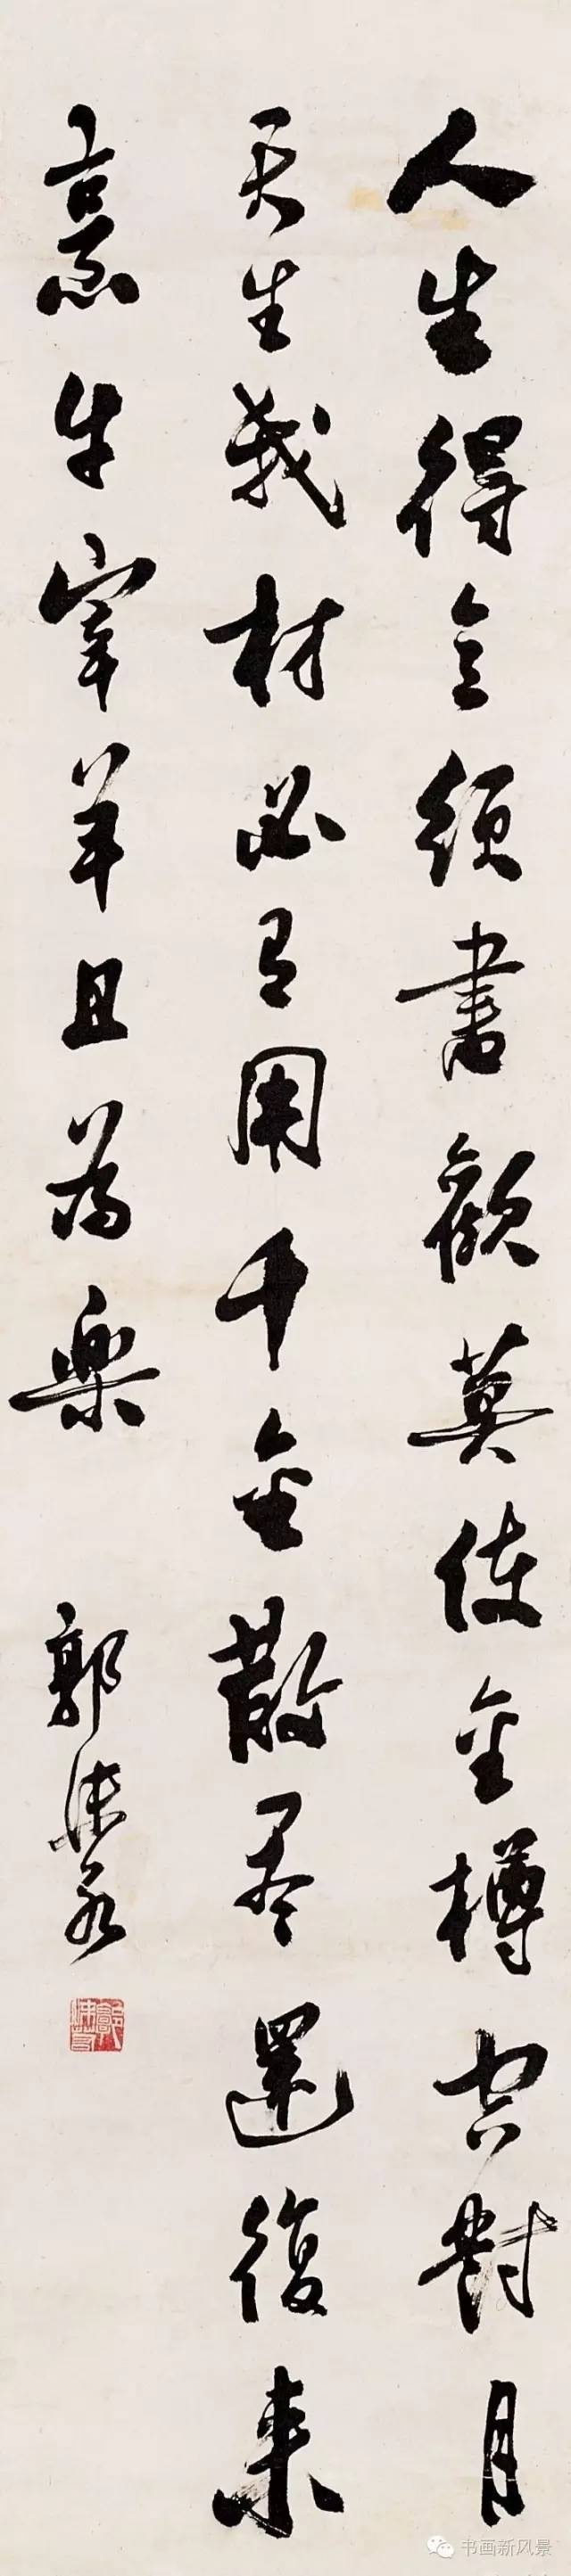 人生得意須盡歡莫使金樽空對月
天生我材必有用千金散盡還復来
烹牛宰羊且為樂 郭沫若
郭沫若
书画新风景